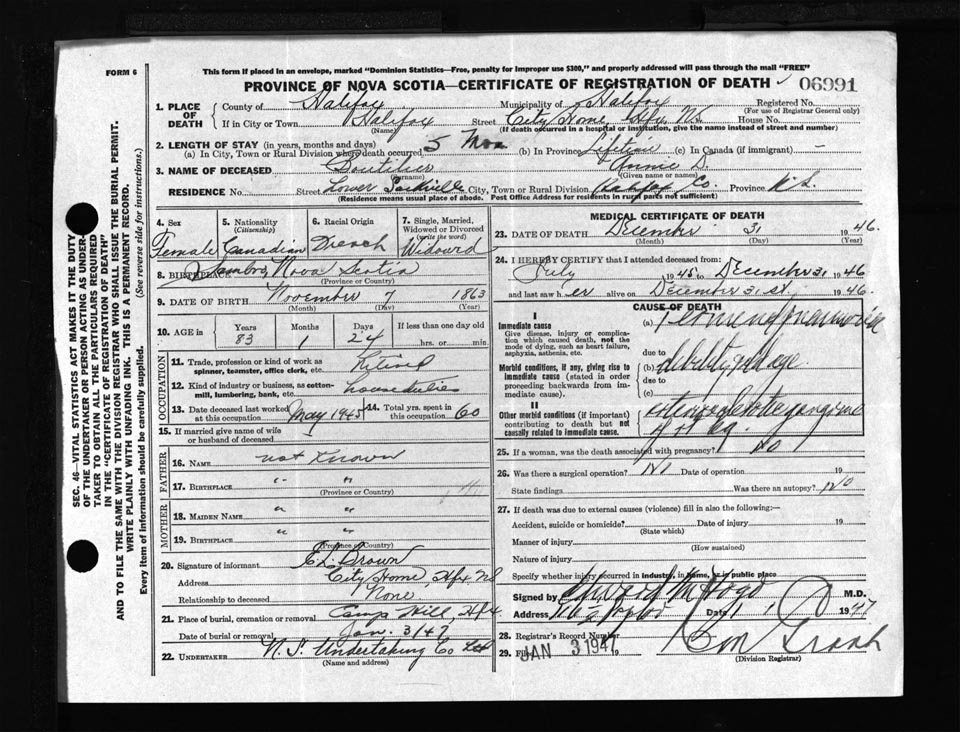 FORM 6
This form if placed in an envelope, marked "Dominion Statistics—Free, penalty for improper use $300," and properly addressed will pass through the mail "FREE"
PROVINCE OF NOVA SCOTIA—CERTIFICATE OF REGISTRATION OF DEATH 06991
SEC. 46—VITAL STATISTICS ACT MAKES IT THE DUTY
OF THE UNDERTAKER OR PERSON ACTING AS UNDERTAKER TO OBTAIN ALL THE PARTICULARS REQUIRED
IN THE "CERTIFICATE OF REGISTRATION OF DEATH"
AND TO FILE THE SAME WITH THE DIVISION REGISTRAR WHO SHALL ISSUE THE BURIAL PERMIT.
WRITE PLAINLY WITH UNFADING INK. THIS IS A PERMANENT RECORD.
Every item of information should be carefully supplied. (See reverse side for instructions.)
1. PLACE OF DEATH County of Halifax Municipality of Halifax Registered No.
(For use of Registrar General only)
If in City or Town Halifax Street City Home, Hfx, N.S. House No.
(Name) (If death occurred in a hospital or institution, give the name instead of street and number)
2. LENGTH OF STAY (in years, months and days)
(a) In City, Town or Rural Division where death occurred 5 Mos (b) In Province Lifetime (c) In Canada (if immigrant) —
3. NAME OF DECEASED Boutilier Annie D.
(Surname) (Given name or names)
RESIDENCE No. Street Lower Sackville City, Town or Rural Division Halifax Co. Province N.S.
(Residence means usual place of abode. Post Office Address for residents in rural parts not sufficient)
4. Sex Female
5. Nationality (Citizenship) Canadian
6. Racial Origin French
7. Single, Married, Widowed or Divorced (write the word) Widowed
8. BIRTHPLACE Sambro, Nova Scotia
(Province or Country)
9. DATE OF BIRTH November 7 1863
(Month) (Day) (Year)
10. AGE in Years 83 Months 1 Days 24 If less than one day old hrs. or min.
OCCUPATION
11. Trade, profession or kind of work as spinner, teamster, office clerk, etc. Retired
12. Kind of industry or business, as cotton-mill, lumbering, bank, etc. house duties
13. Date deceased last worked at this occupation May 1945 14. Total yrs. spent in this occupation 60
15. If married give name of wife or husband of deceased
FATHER
16. NAME not known
17. BIRTHPLACE " "
(Province or Country)
MOTHER
18. MAIDEN NAME " "
19. BIRTHPLACE " "
(Province or Country)
20. Signature of informant Brown
Address City Home, Hfx NS
Relationship to deceased None
21. Place of burial, cremation or removal Camp Hill, Hfx
Date of burial or removal Jan. 3/47
22. UNDERTAKER N.S. Undertaking Co Ltd
(Name and address)
MEDICAL CERTIFICATE OF DEATH
23. DATE OF DEATH December 31 1946.
(Month) (Day) (Year)
24. I HEREBY CERTIFY that I attended deceased from:
July 1945 to December 31 1946
and last saw her alive on December 31 st. 1946.
CAUSE OF DEATH
I
Immediate cause
Give disease, injury or complication which caused death, not the mode of dying, such as heart failure, asphyxia, asthenia, etc.
(a) Terminal pneumonia
due to
Morbid conditions, if any, giving rise to immediate cause (stated in order proceeding backwards from immediate cause).
(b) debility old age
due to
(c)
II
Other morbid conditions (if important) contributing to death but not causally related to immediate cause.
arteriosclerotic gangrene
of rt leg.
25. If a woman, was the death associated with pregnancy? No
26. Was there a surgical operation? No Date of operation 19
State findings Was there an autopsy? No
27. If death was due to external causes (violence) fill in also the following:—
Accident, suicide or homicide? Date of injury 19
(State which)
Manner of injury
(How sustained)
Nature of injury
Specify whether injury occurred in industry, in home, or in public place
Signed by M.D.
Address Date 1 1947
28. Registrar's Record Number
29. Filed JAN 3 1947 19
(Division Registrar)